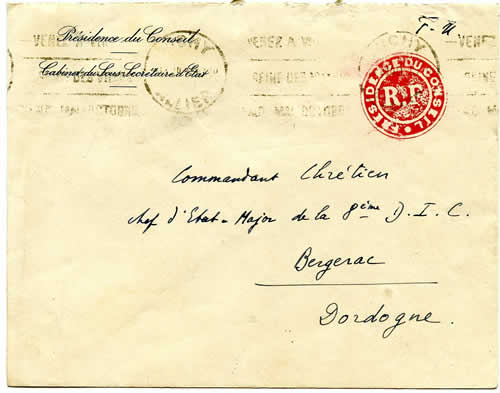 Présidence du Conseil
Cabinet du Sous-Secrétaire d'Etat
VENEZ A VI
VICHY
ALLIER
VENEZ A VI
REINE DES VI
MAI OCTOBRE
F. M
PRESIDENCE DU CONSEIL
R.F.
Commandant Chrétien
chef d'Etat-Major de la 8ème D.I.C.
Bergerac
Dordogne.